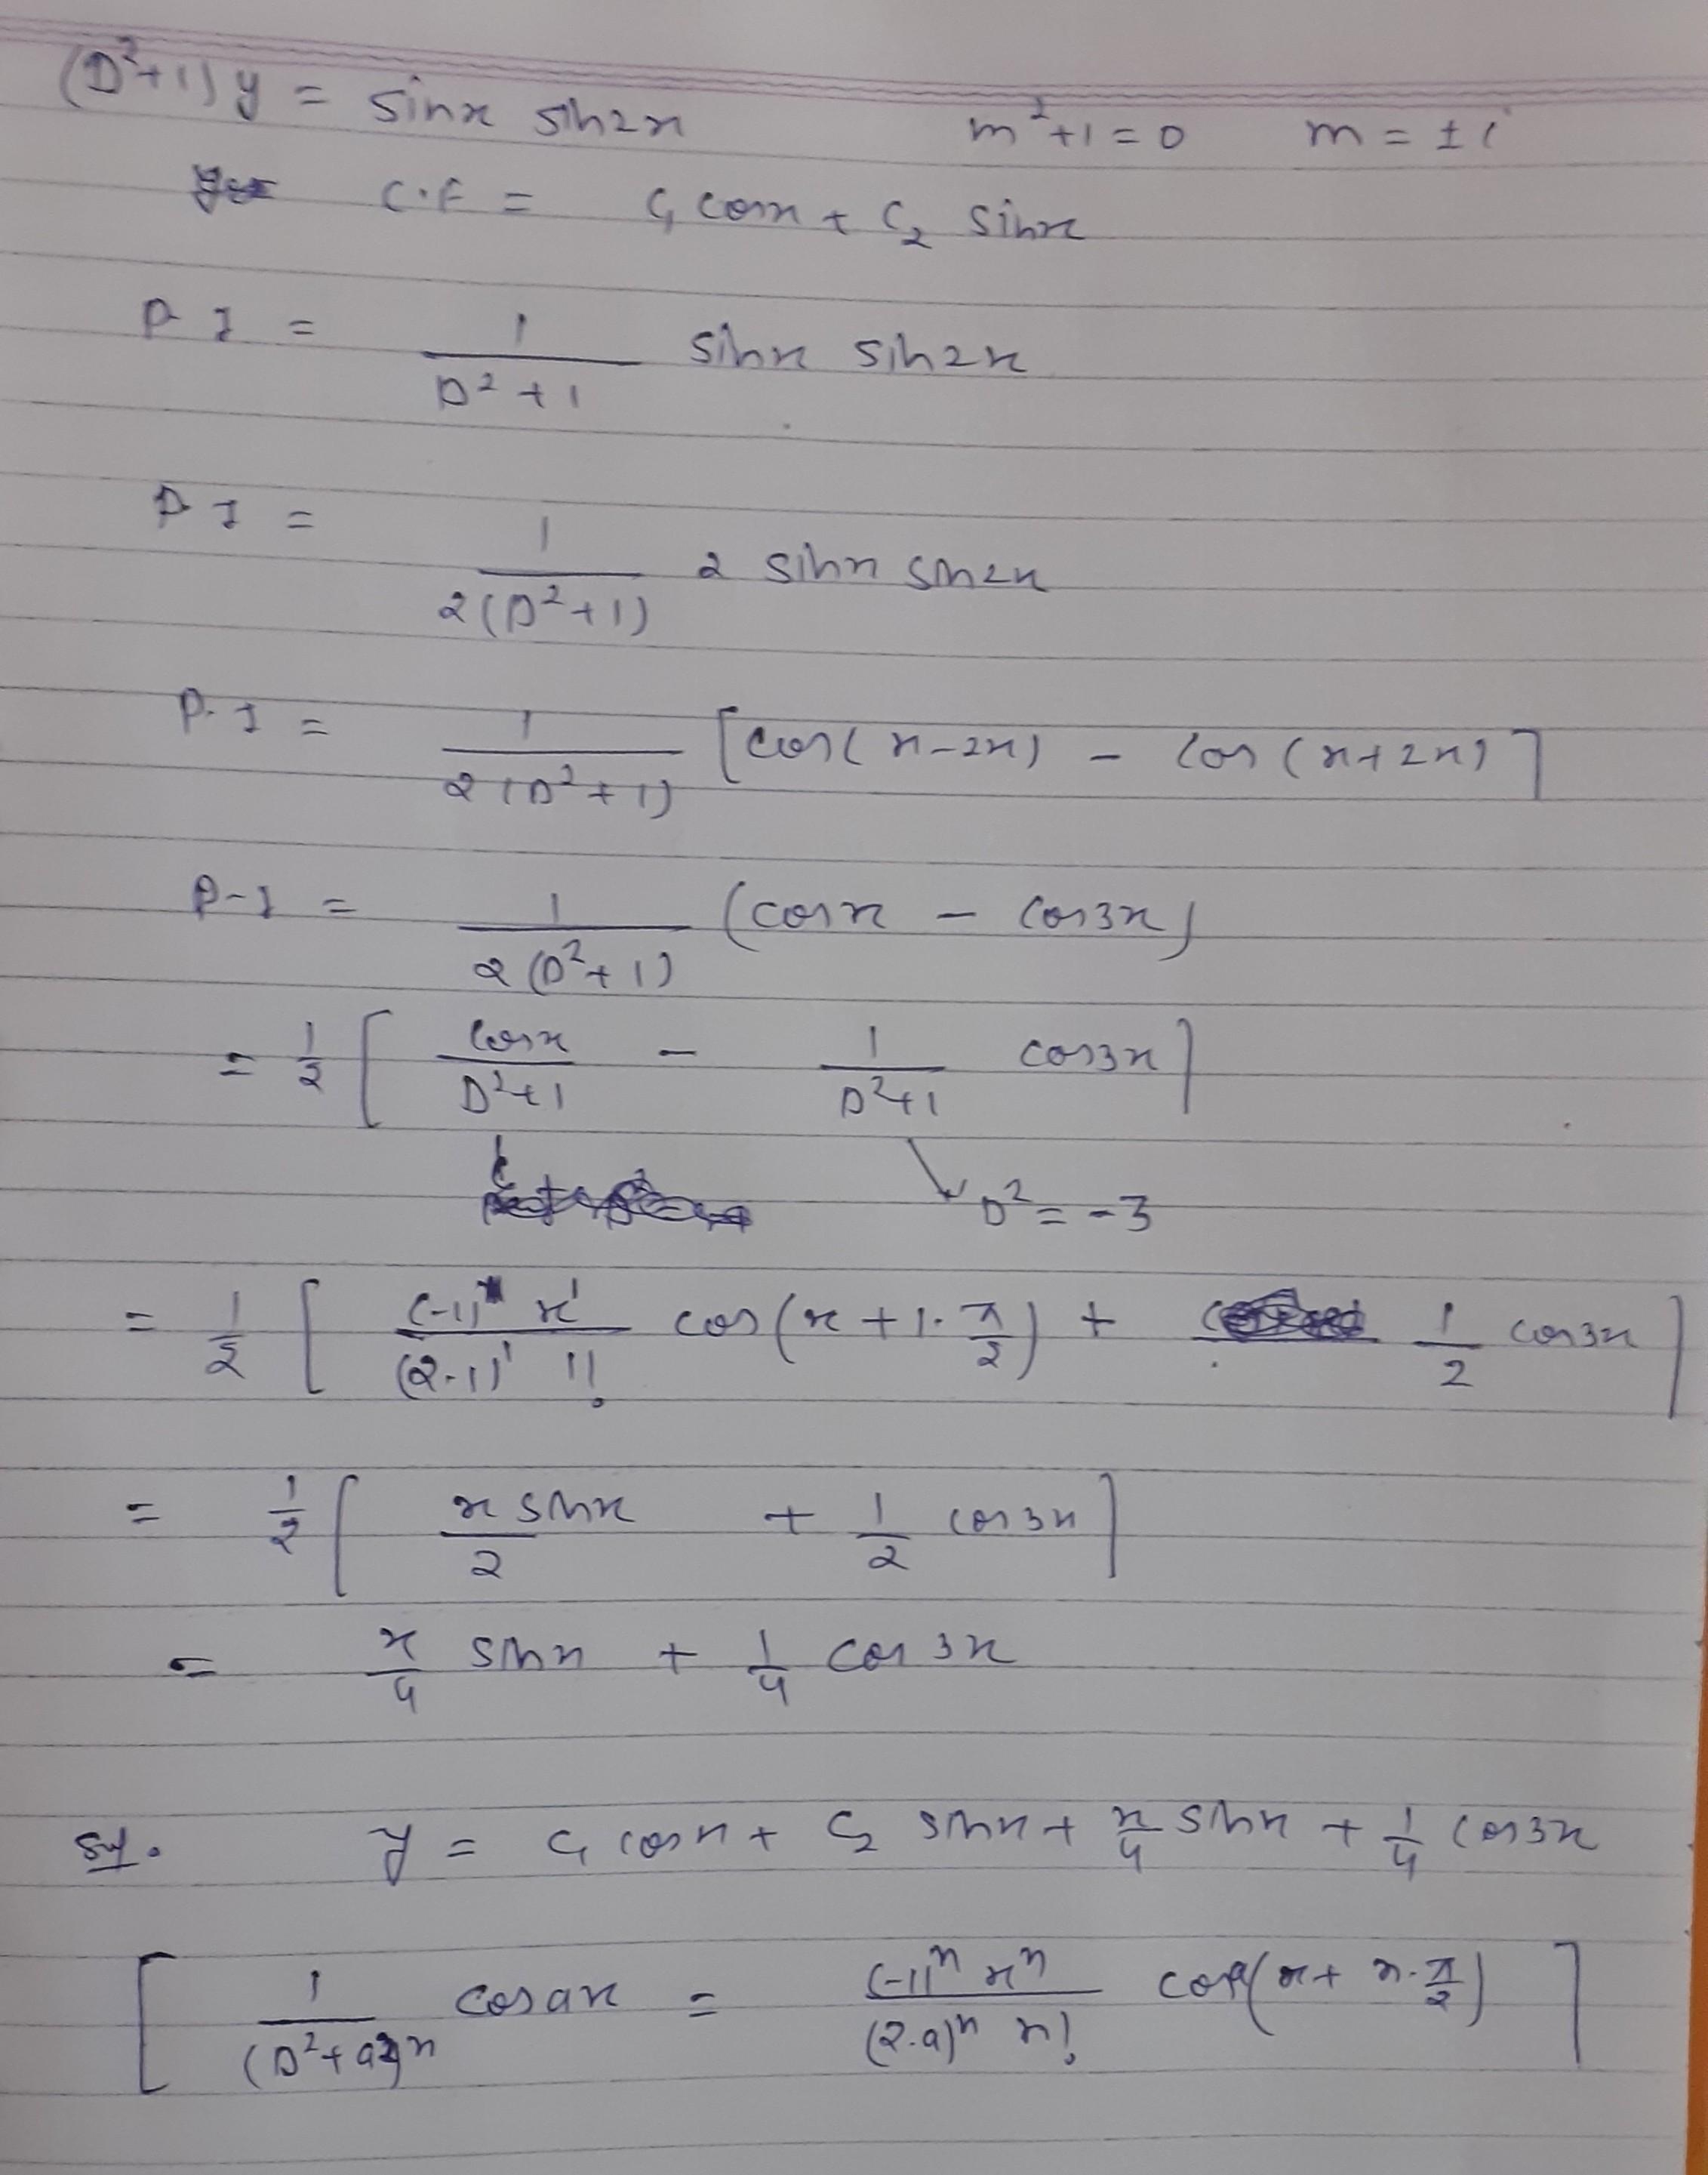 (D²+1)y = sinx sin2x m²+1=0 m = ±i
C.F = C₁ cosx + C₂ sinx
P I = 1/(D²+1) sinx sin2x
P I = 1/(2(D²+1)) 2 sinx sin2x
P.I = 1/(2(D²+1)) [cos(x-2x) - cos(x+2x)]
P-I = 1/(2(D²+1)) (cosx - cos3x)
= 1/2 [cosx/(D²+1) - 1/(D²+1) cos3x]
D² = -3
= 1/2 [(-1) x¹/((2.1)¹ 1!) cos(x+1.π/2) + 1/2 cos3x]
= 1/2 [x sinx/2 + 1/2 cos3x]
= x/4 sinx + 1/4 cos3x
y = C₁ cosx + C₂ sinx + x/4 sinx + 1/4 cos3x
[1/(D²+a²)ⁿ cosax = (-1)ⁿ xⁿ/((2.a)ⁿ n!) cos(x+n.π/2)]